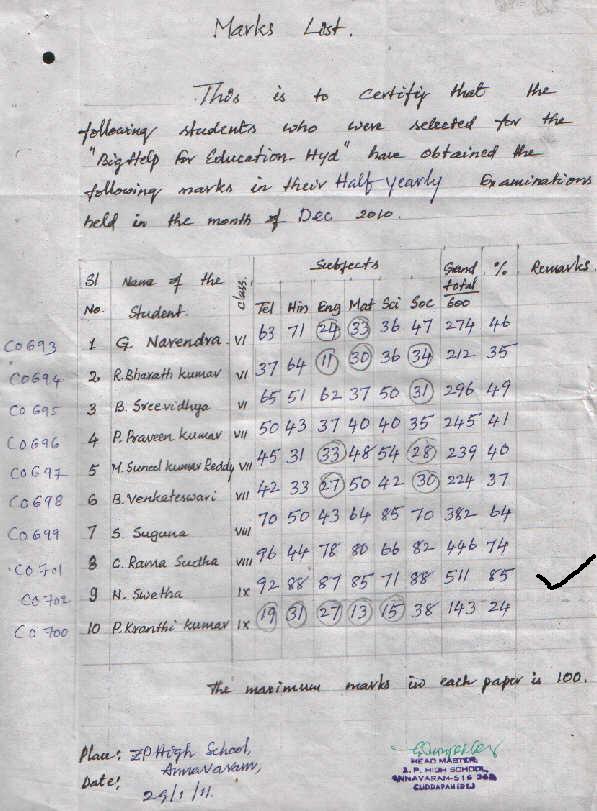 Marks List.
This is to certify that the
following students who were selected for the
"Big Help For Education-Hyd" have obtained the
following marks in their Half yearly Examinations
held in the month of Dec 2010.
Sl No. Name of the Student. Class. Subjects Grand total 600 % Remarks.
Tel Hin Eng Mat Sci Soc
C0693 1 G. Narendra VI 63 71 24 33 36 47 274 46
C0694 2 R.Bharath kumar VI 37 64 11 30 36 34 212 35
C0695 3 B. Sreevidhya VI 65 51 62 37 50 31 296 49
C0696 4 P. Praveen kumar VII 50 43 37 40 40 35 245 41
C0697 5 M. Suneel kumar Reddy VII 45 31 33 48 54 28 239 40
C0698 6 B. Venkateswari VII 42 33 27 50 42 30 224 37
C0699 7 S. Suguna VIII 70 50 43 64 85 70 382 64
C0701 8 C. Rama Sudha VIII 96 44 78 80 66 82 446 74
C0702 9 N. Swetha IX 92 88 87 85 71 88 511 85
C0700 10 P.Kranthi kumar IX 19 31 27 13 15 38 143 24
The maximum marks in each paper is 100.
Place: ZP High School,
Annavaram,
Date: 29/1/11.
HEAD MASTER
Z. P. HIGH SCHOOL,
ANNAVARAM-516
CUDDAPAH